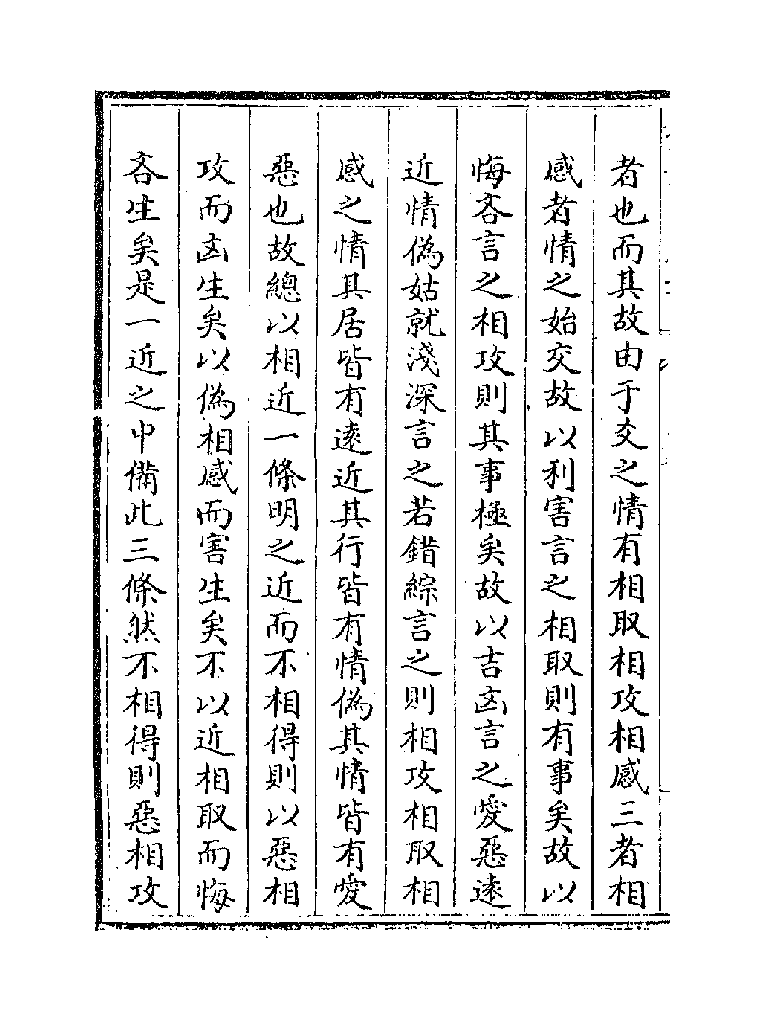 者也而其故由于交之情有相取相攻相感三者相
感者情之始交故以利害言之相取則有事矣故以
悔吝言之相攻則其事極矣故以吉㐫言之愛惡逺
近情偽姑就淺深言之若錯綜言之則相攻相取相
感之情其居皆有逺近其行皆有情偽其情皆有愛
惡也故總以相近一條明之近而不相得則以惡相
攻而㐫生矣以偽相感而害生矣不以近相取而悔
吝生矣是一近之中備此三條然不相得則惡相攻